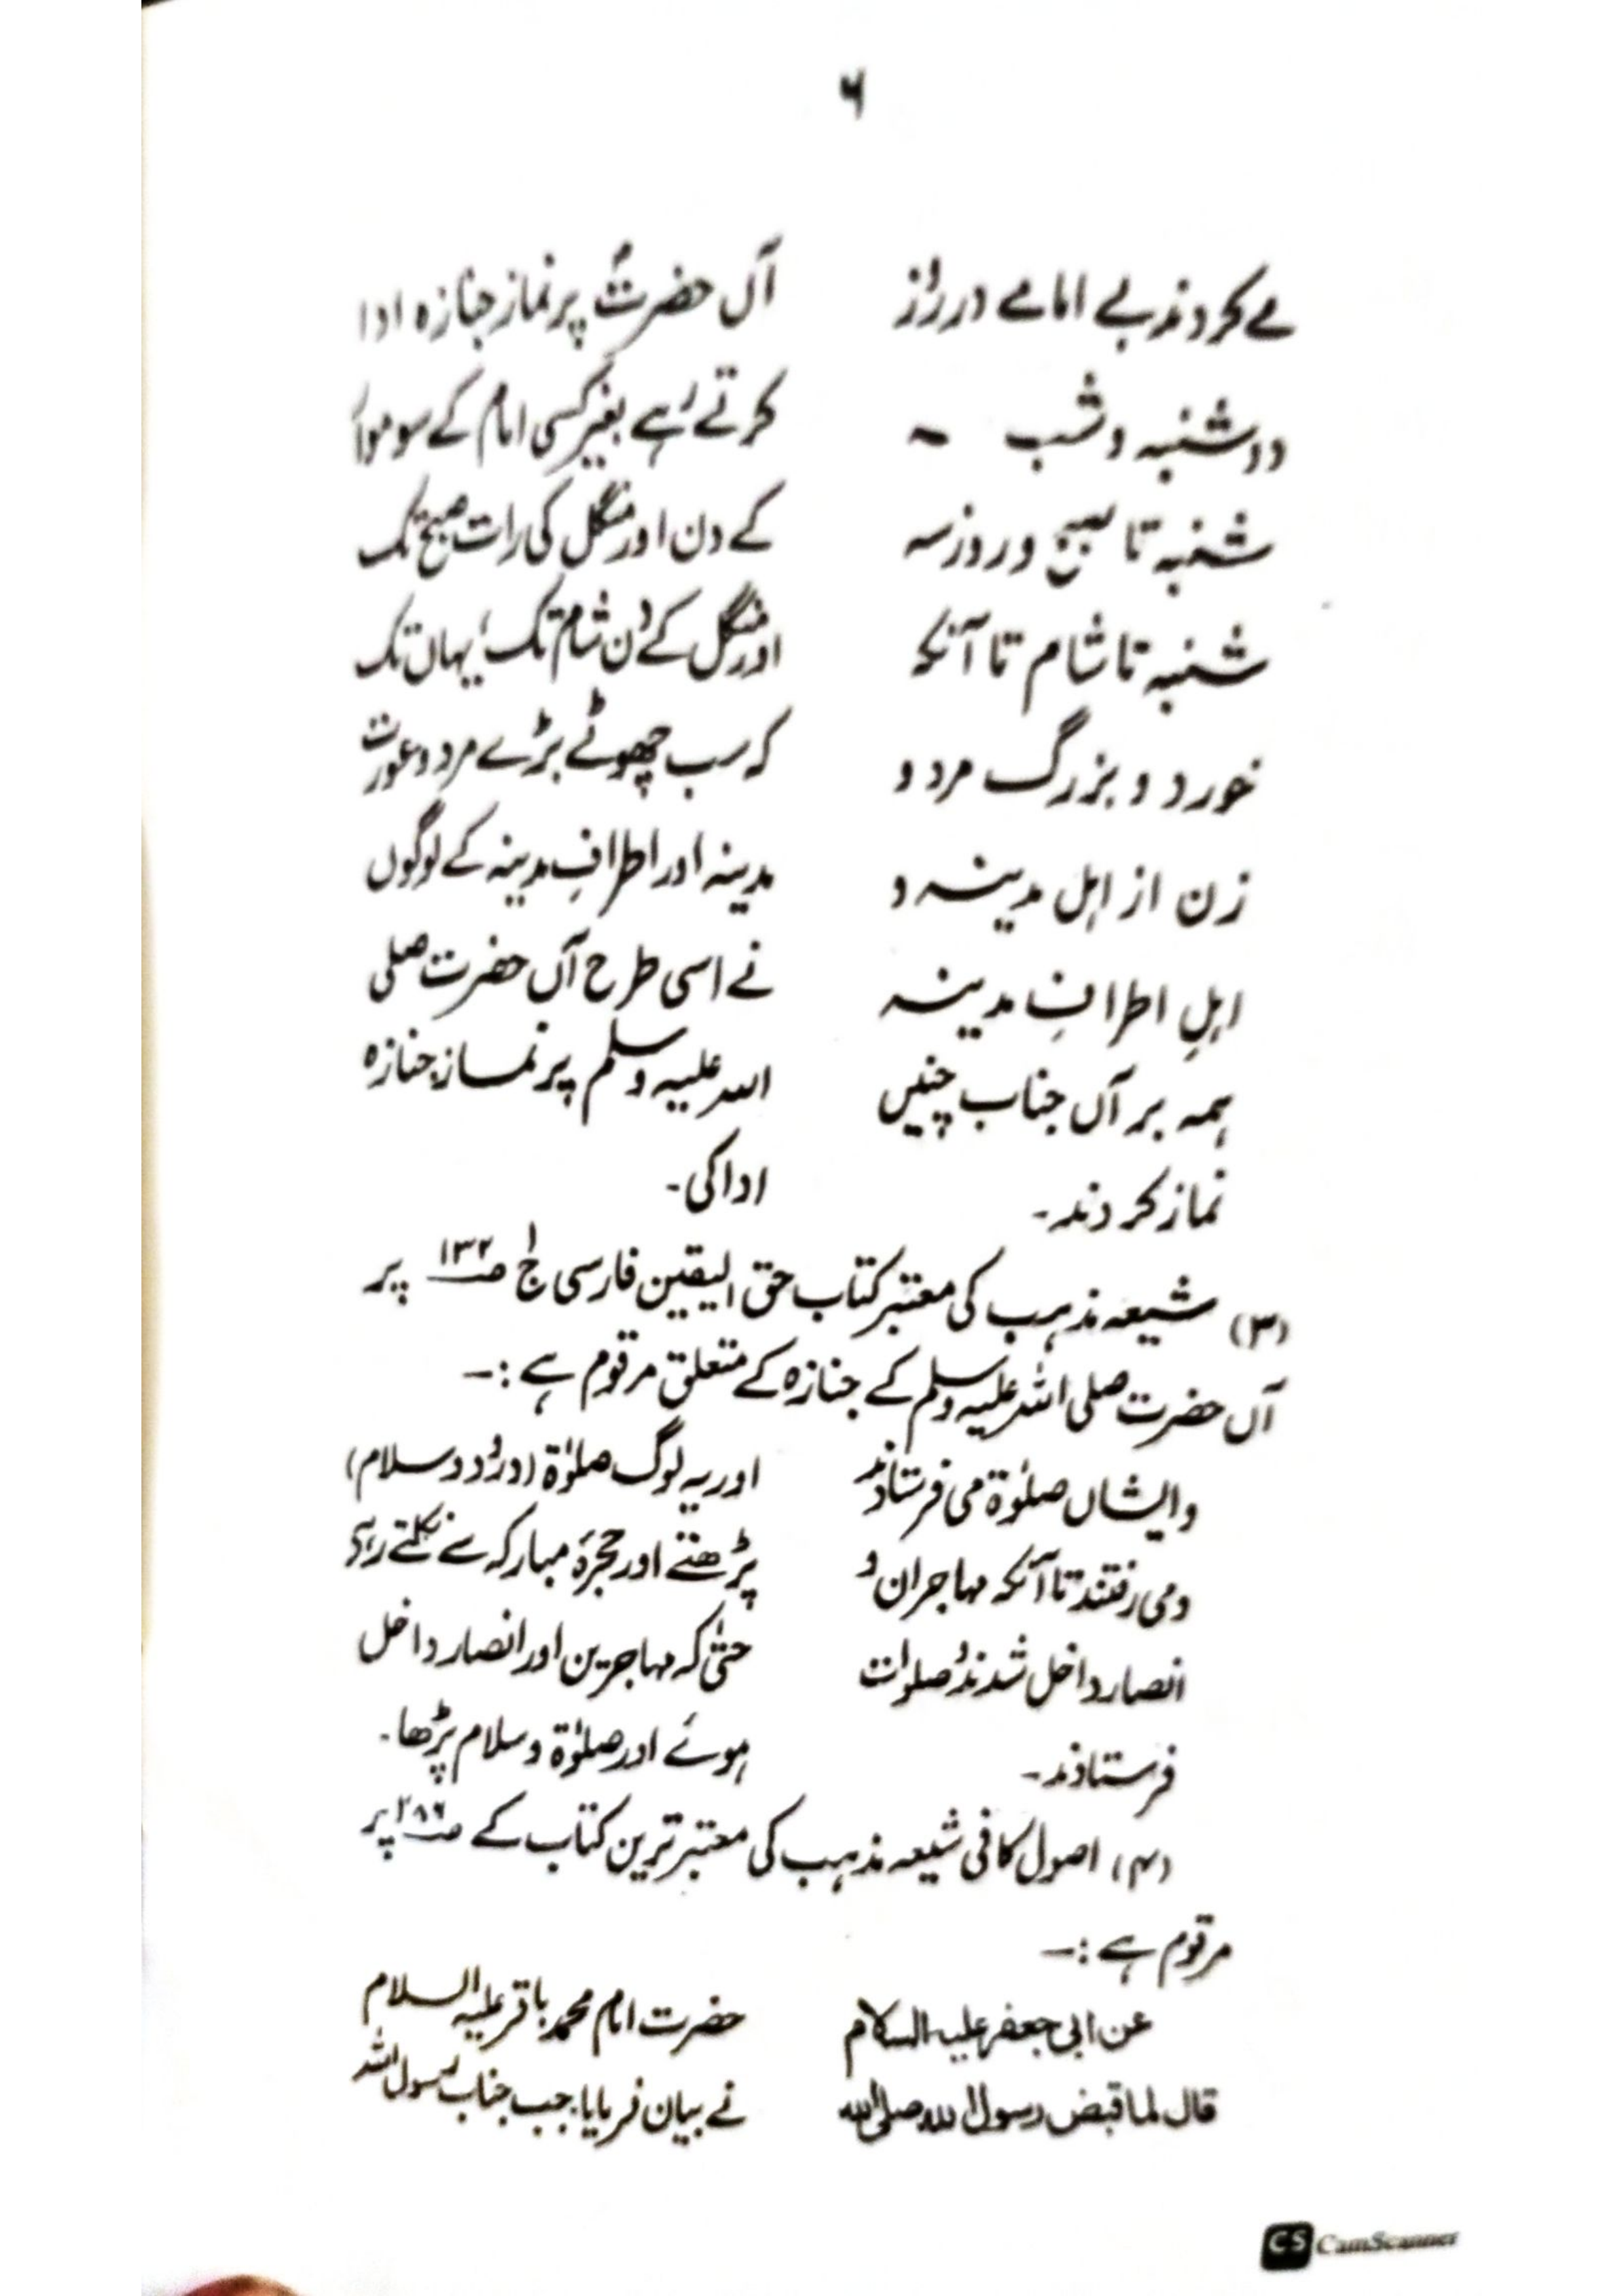 ۶
مے کردند بے امامے در روز
دوشنبہ و شب
شنبہ تا صبح و روز سہ
شنبہ تا شام تا آنکہ
خورد و بزرگ مرد و
زن از اہل مدینہ و
اہلِ اطرافِ مدینہ
ہمہ بر آں جناب چنیں
نماز کردند۔
آں حضرتؐ پر نماز جنازہ ادا
کرتے رہے بغیر کسی امام کے سوموار
کے دن اور منگل کی رات صبح تک
اور منگل کے دن شام تک، یہاں تک
کہ سب چھوٹے بڑے مرد و عورت
مدینہ اور اطرافِ مدینہ کے لوگوں
نے اسی طرح آں حضرت صلی
اللہ علیہ وسلم پر نماز جنازہ
ادا کی۔
(۳) شیعہ مذہب کی معتبر کتاب حق الیقین فارسی ج۱ صـ۱۳۲ پر
آں حضرت صلی اللہ علیہ وسلم کے جنازہ کے متعلق مرقوم ہے :۔
و ایشاں صلوٰۃ می فرستادند
و می رفتند تا آنکہ مہاجران و
انصار داخل شدند و صلوات
فرستادند۔
اور یہ لوگ صلوٰۃ (درود و سلام)
پڑھتے اور حجرۂ مبارکہ سے نکلتے رہے
حتیٰ کہ مہاجرین اور انصار داخل
ہوئے اور صلوٰۃ و سلام پڑھا۔
(۴) اصول کافی شیعہ مذہب کی معتبر ترین کتاب کے صـ۲۸۶ پر
مرقوم ہے :۔
عن ابی جعفر علیہ السلام
قال لما قبض رسول اللہ صلی اللہ
حضرت امام محمد باقر علیہ السلام
نے بیان فرمایا، جب جناب رسول اللہ
CS CamScanner